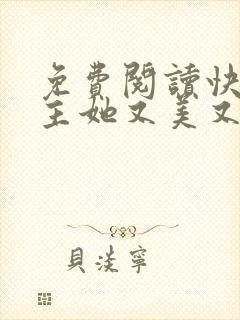 免費閱讀快
主她又美又
貝淡寧